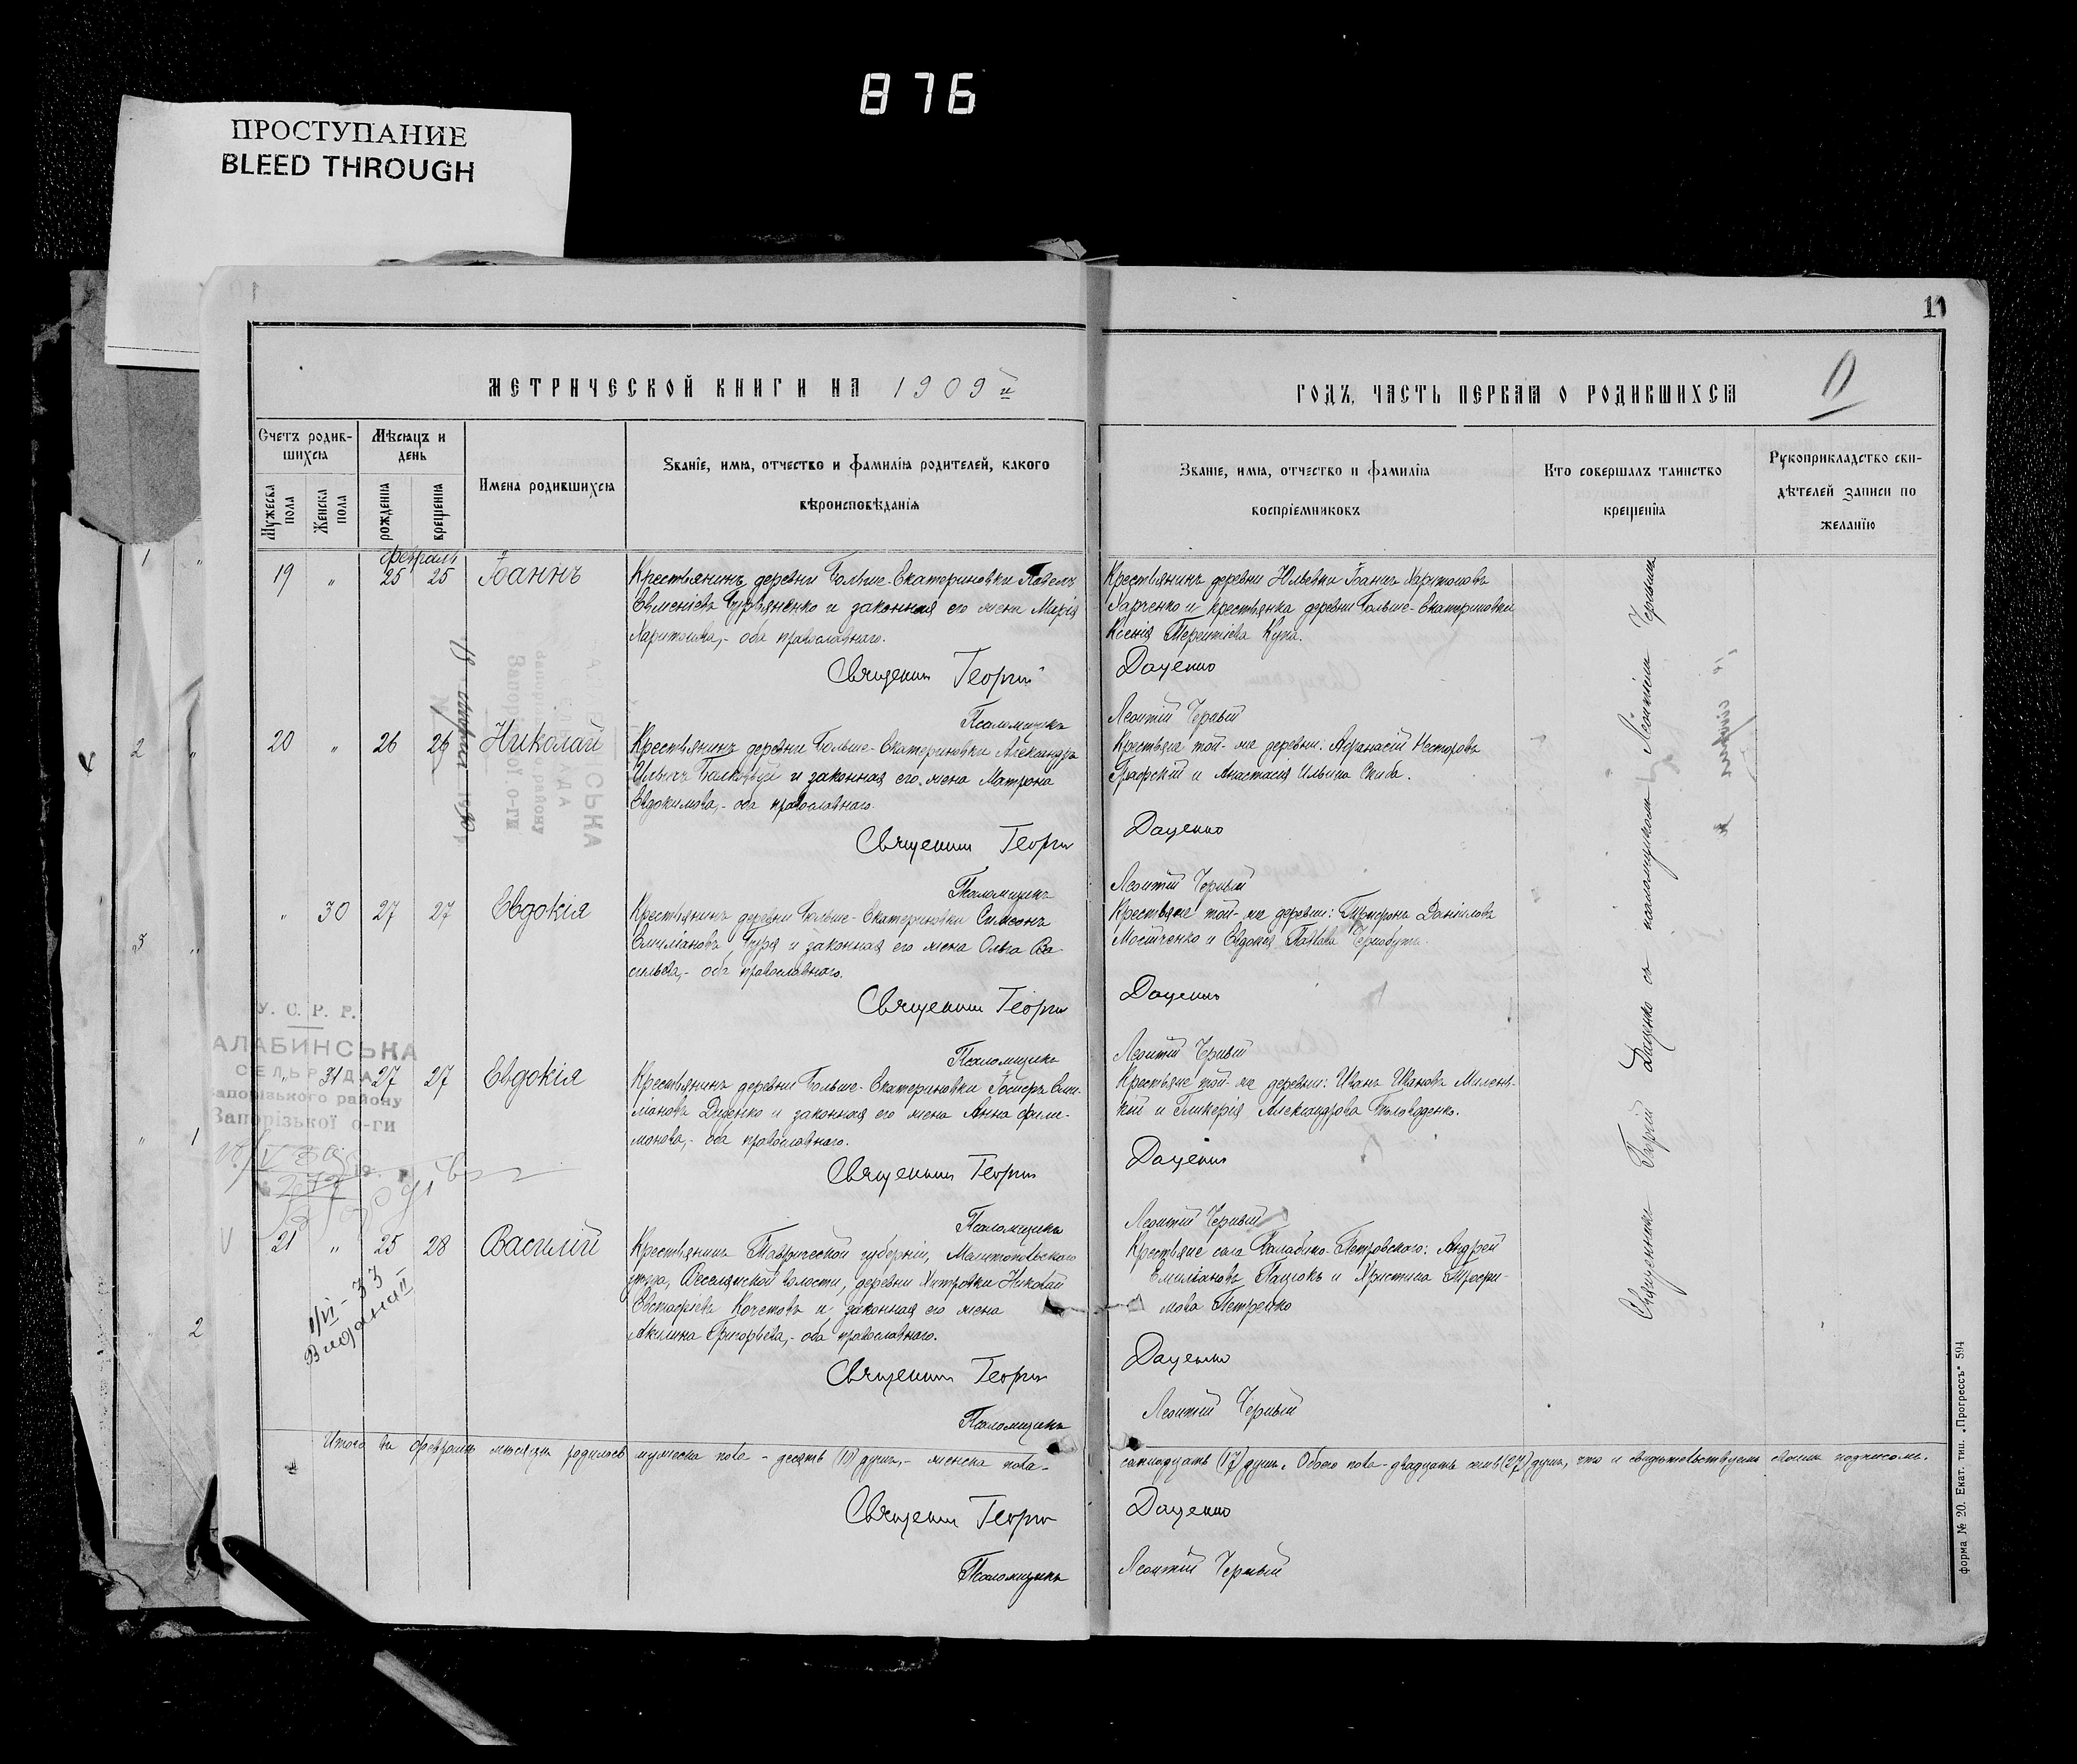 876
ПРОСТУПАНИЕ
BLEED THROUGH
11
МЕТРИЧЕСКОЙ КНИГИ НА 1909 й
ГОДЪ, ЧАСТЬ ПЕРВАЯ О РОДИВШИХСЯ
Счетъ родившихся
Мѣсяцъ и день
Имена родившихся
Званіе, имя, отчество и фамилія родителей, какого
вѣроисповѣданія
Званіе, имя, отчество и фамилія
воспріемниковъ
Кто совершалъ таинство
крещенія
Рукоприкладство сви-
дѣтелей записи по
желанію
Мужеска пола
Женска пола
рожденія
крещенія
февраль
19 " 25 25 Іоаннъ
Крестьянинъ деревни Больше-Екатериновки Павелъ
и законная его жена Марія
Харитонова,- оба православнаго.
Крестьянинъ деревни Юльевки Іоаннъ Харитоновъ
Харченко и крестьянка деревни Больше-Екатериновки
Ксенія Терентіева
Священникъ Георгій Даценко
Псаломщикъ Леонтій Черный
20 " 26 26 Николай
Крестьянинъ деревни Больше-Екатериновки Александръ
Ильинъ и законная его жена Матрона
Евдокимова,- оба православнаго.
Крестьяне той-же деревни: Афанасій Несторовъ
Графскій и Анастасія Ильина Скиба.
Священникъ Георгій Даценко
Псаломщикъ Леонтій Черный
" 30 27 27 Евдокія
Крестьянинъ деревни Больше-Екатериновки Симеонъ
Емиліановъ и законная его жена Ольга Ва-
сильева,- оба православнаго.
Крестьяне той-же деревни: Трифонъ Даніиловъ
и Евдокія Павлова
Священникъ Георгій Даценко
Псаломщикъ Леонтій Черный
У. С. Р. Р.
АЛАБИНСЬКА
СЕЛЬРАДА
Запорізького району
Запорізької о-ги
" 31 27 27 Евдокія
Крестьянинъ деревни Больше-Екатериновки Іосифъ Еми-
ліановъ Диденко и законная его жена Анна Фили-
монова,- оба православнаго.
Крестьяне той-же деревни: Иванъ Ивановъ
и Гликерія Александрова
Священникъ Георгій Даценко
Псаломщикъ Леонтій Черный
21 " 25 28 Василій
Крестьянинъ Таврической губерніи, Мелитопольскаго
уѣзда, Веселянской волости, деревни Николай
Евстафіевъ Кочетовъ и законная его жена
Акилина Григорьева,- оба православнаго.
Крестьяне села Балабино-Петровскаго: Андрей
Емиліановъ Пацюкъ и Христина Трофи-
мова Петренко
Священникъ Георгій Даценко
Псаломщикъ Леонтій Черный
1/VI-33
Священникъ Георгій Даценко съ псаломщикомъ Леонтіемъ Чернымъ
Итого въ февралѣ мѣсяцѣ родилось мужеска пола - десять (10) душъ,- женска пола-
семнадцать (17) душъ. Обоего пола - двадцать семь (27) душъ, что и свидѣтельствуемъ своими подписомъ.
Священникъ Георгій Даценко
Псаломщикъ Леонтій Черный
Форма № 20. Екат. тип. „Прогрессъ" 594